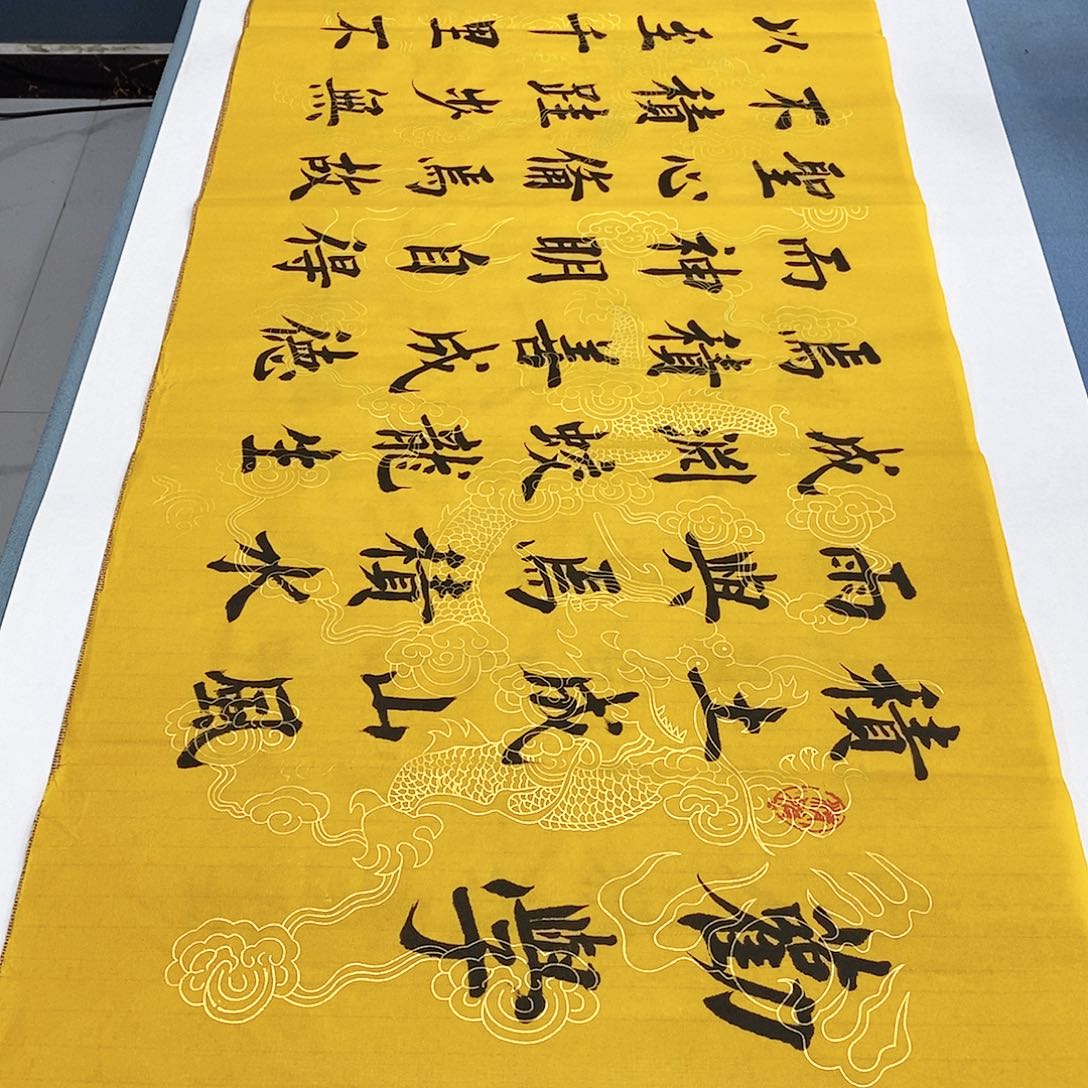 勸學
積土成山風
雨興焉積水
成淵蛟龍生
焉積善成德
而神明自得
聖心備焉故
不積跬步無
以至千里不